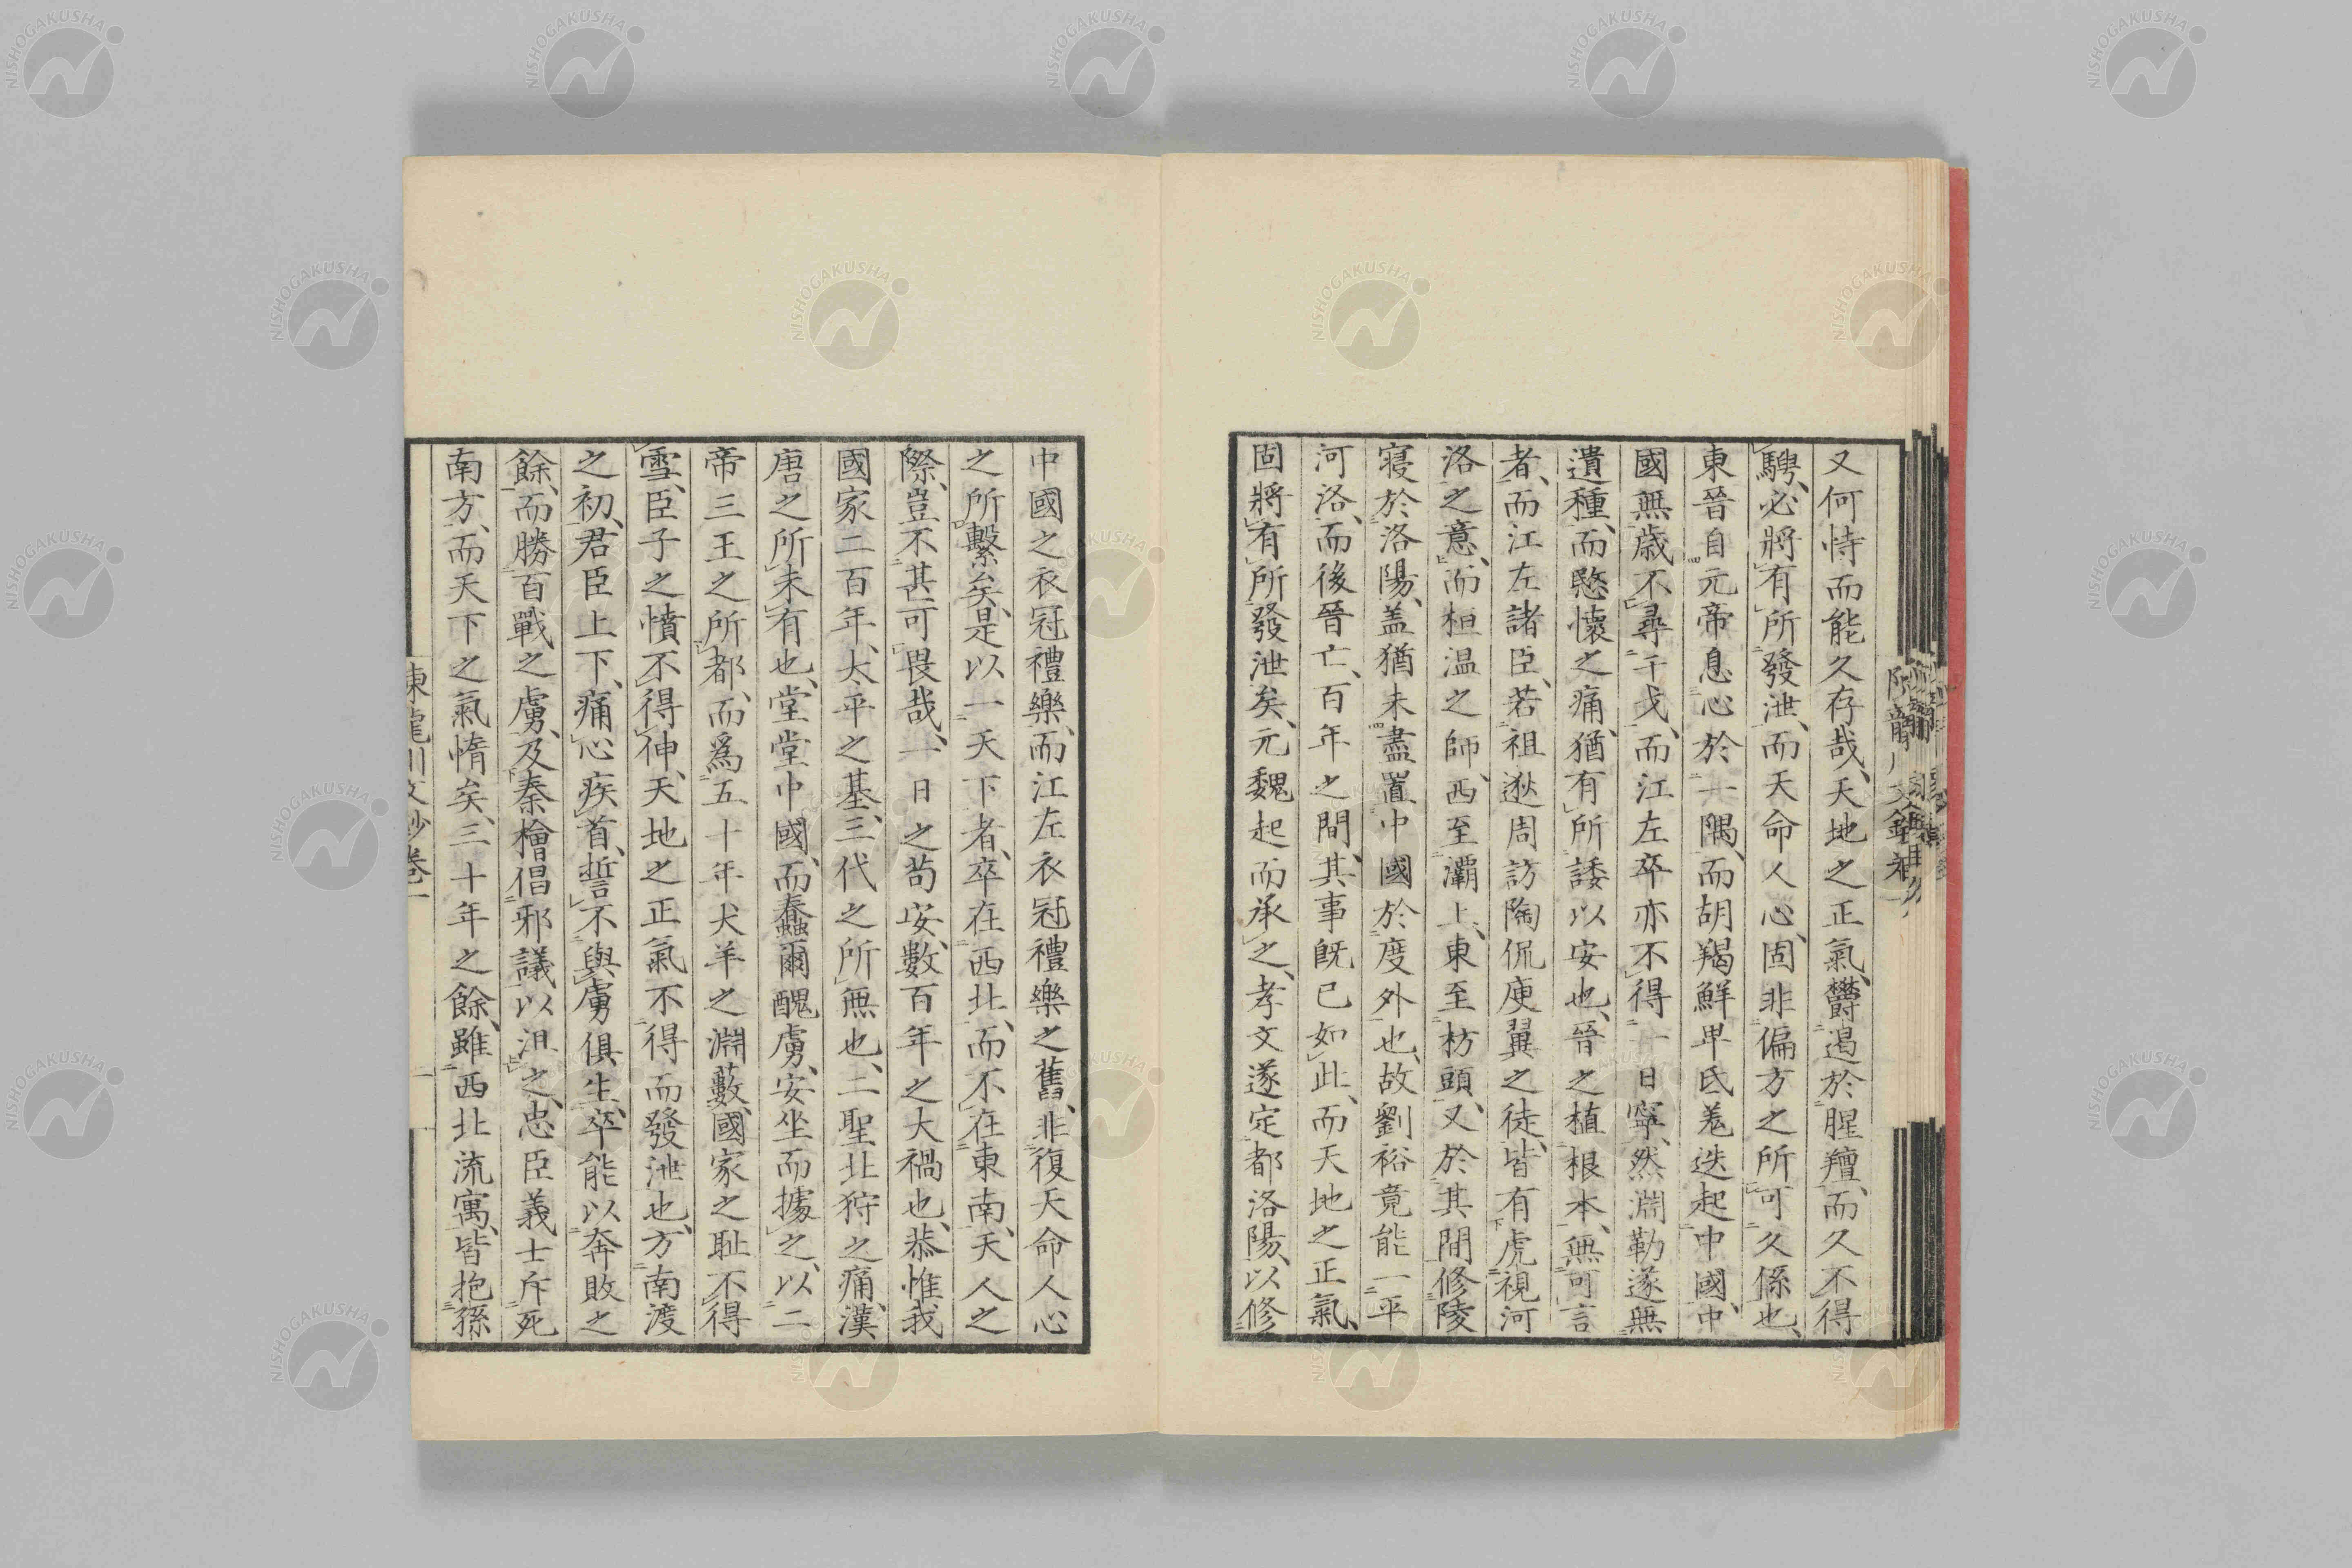 又何恃而能久存哉、天地之正氣、欝遏於腥羶、而久不得
騁、必將有所發泄、而天命人心、固非偏方之所可久係也、
東晉自元帝息心於一隅、而胡羯鮮卑氐羌迭起中國、中
國無歲不尋干戈、而江左卒亦不得一日寧、然淵勒遂無
遺種、而愍懷之痛、猶有所諉以安也、晉之植根本、無可言
者、而江左諸臣、若祖逖周訪陶侃庾翼之徒、皆有虎視河
洛之意、而桓温之師、西至灞上、東至枋頭、又於其間修陵
寢於洛陽、盖猶未盡置中國於度外也、故劉裕竟能一平
河洛、而後晉亡、百年之間、其事既已如此、而天地之正氣、
固將有所發泄矣、元魏起而承之、孝文遂定都洛陽、以修
中國之衣冠禮樂、而江左衣冠禮樂之舊、非復天命人心
之所繫矣、是以一天下者、卒在西北、而不在東南、天人之
際、豈不甚可畏哉、一日之苟安、數百年之大禍也、恭惟我
國家二百年、太平之基、三代之所無也、二聖北狩之痛、漢
唐之所未有也、堂堂中國、而蠢爾醜虜、安坐而據之、以二
帝三王之所都、而爲五十年犬羊之淵藪、國家之耻不得
雪、臣子之憤不得伸、天地之正氣不得而發泄也、方南渡
之初、君臣上下、痛心疾首、誓不與虜俱生、卒能以奔敗之
餘、而勝百戰之虜、及秦檜倡邪議以沮之、忠臣義士斥死
南方、而天下之氣惰矣、三十年之餘、雖西北流寓、皆抱孫
陳龍川文鈔卷一
二
NISHOGAKUSHA